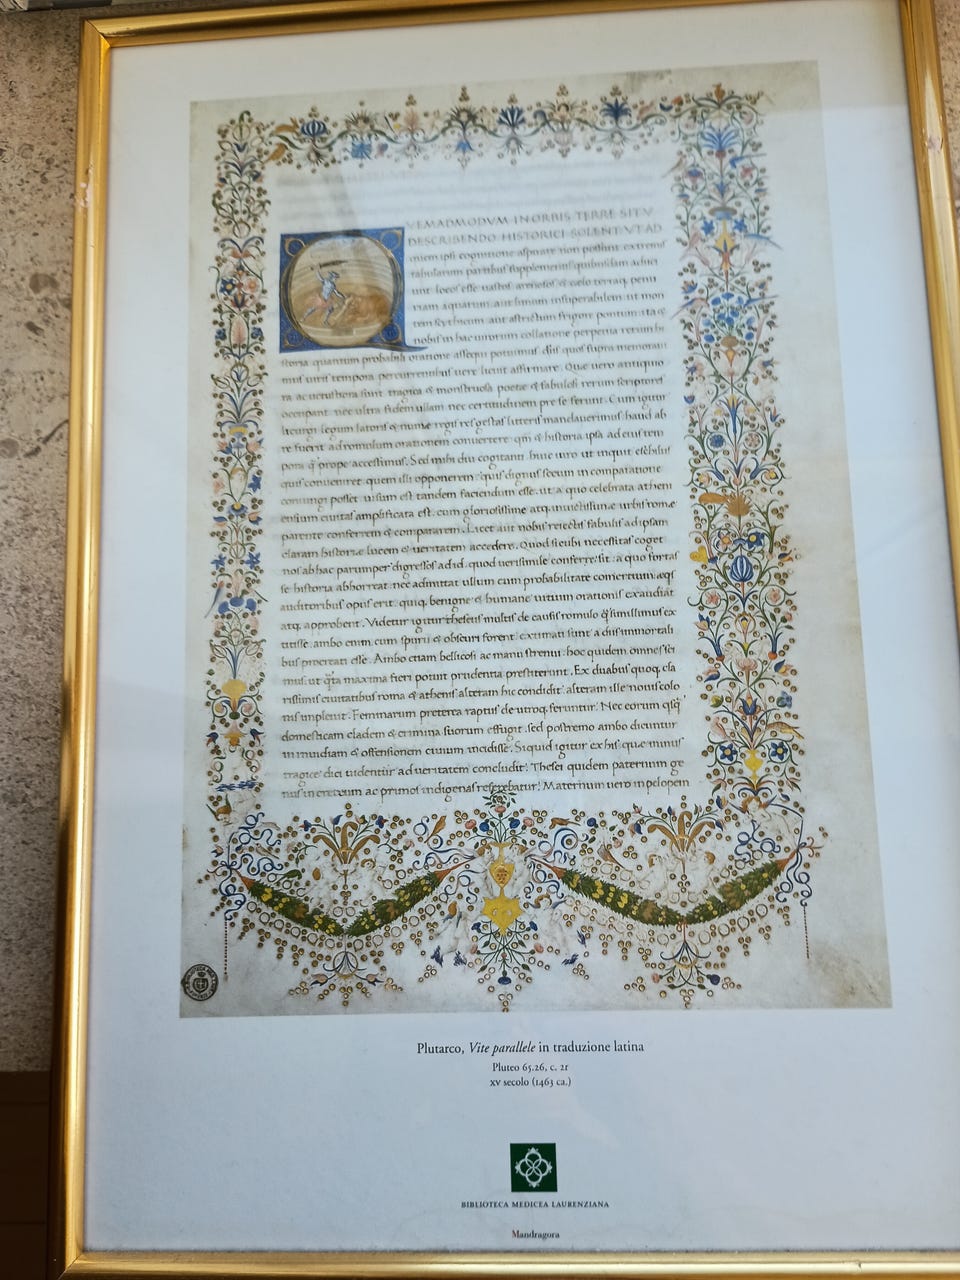 QVEMADMODVM IN ORBIS TERRE SITV
DESCRIBENDO HISTORICI SOLENT VT AD
ipsi cognitione aspirare non possint extremis
tabularum partibus supplementis quibusdam adiec
loca esse uastos arenosos & celo terraq; penu
riam aquarum aut limum insuperabilem ut mon
tem scythicum aut astrictum frigore pontum ita &
nobis in hac uirorum collatione perpetua rerum hi
storia quantum probabili oratione assequi potuimus dijs quos supra memoraui
mus uiris tempora percurrentibus uere licuit affirmare. Que uero antiquio
ra ac uetustiora sunt tragica & monstruosa poete & fabulosi rerum scriptores
occupant nec ultra fidem ullam nec certitudinem pre se ferunt. Cum igitur
licurgi legum latoris & nume regis res gestas litteris mandauerimus haud ab
re fuerit ad romulum orationem conuertere & historia ipsa ad eius tem
pora & prope accessimus. Sed mihi diu cogitanti huic uiro ut inquit
quis conueniret quem illi opponerem quis dignus secum in comparatione
coniungi posset uisum est tandem faciendum esse ut a quo celebrata atheni
ensium ciuitas amplificata est cum gloriosissime atq; inuictissime urbis rome
parente conferrem & compararem. Licet aut nobis reiectis fabulis ad ipsam
claram historie lucem & ueritatem accedere. Quod sicubi necessitas coget
nos ab hac parumper digressos ad id quod uerisimile conferre sit a quo fortas
se historia abhorreat nec admittat ullum cum probabilitate comertium
auditoribus opus erit quiq; benigne & humane uitium orationis exaudiat
atq; approbent. Videtur igitur theseus multis de causis romulo simillimus ex
titisse ambo enim cum spurii & obscuri forent existimati sunt a diis immortali
bus procreati esse. Ambo etiam bellicosi ac manu strenui hoc quidem omnes sci
mus ut maxima fieri potuit prudentia prestiterunt. Ex duabus quoq; cla
rissimis ciuitatibus roma & athenis alteram hic condidit alteram ille nouis colo
nis impleuit. Feminarum preterea raptus de utroq; feruntur. Nec eorum
domesticam cladem & crimina suorum effugit sed postremo ambo dicuntur
in inuidiam & offensionem ciuium incidisse. Siquid igitur ex his que minus
tragice dici uidentur ad ueritatem concludit. Thesei quidem paternum ge
nus in ereteum ac primos indigenas referebatur. Maternum uero in pelopem
Plutarco, Vite parallele in traduzione latina
Pluteo 65.26, c. 2r
XV secolo (1463 ca.)
BIBLIOTECA MEDICEA LAURENZIANA
Mandragora